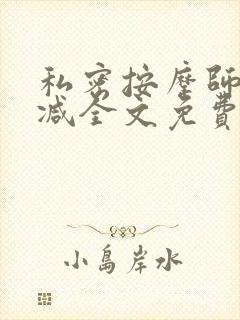 私密按摩師
减全文免費
小島岸水